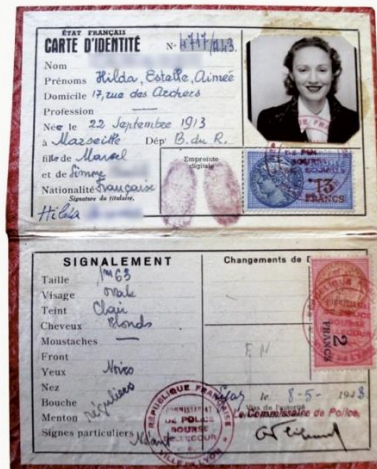 ÉTAT FRANÇAIS
CARTE D'IDENTITÉ N°
Nom
Prénoms Hilda, Estelle, Aimée
Domicile 17, rue des Archers
Profession
Née le 22 Septembre 1913
à Marseille Dép' B. du R.
fille de Marcel
et de
Nationalité Française
Signature du titulaire,
Hilda
Empreinte
digitale
13
FRANCS
SIGNALEMENT
Taille 1m63
Visage ovale
Teint Clair
Cheveux blonds
Moustaches —
Front
Yeux
Nez
Bouche réguliers
Menton
Signes particuliers Néant
Changements de
2
FRANCS
RÉPUBLIQUE FRANÇAISE
COMMISSARIAT
DE POLICE
BOURSE
BELLECOUR
VILLE DE LYON
Lyon le 8-5-
Le Commissaire de Police,